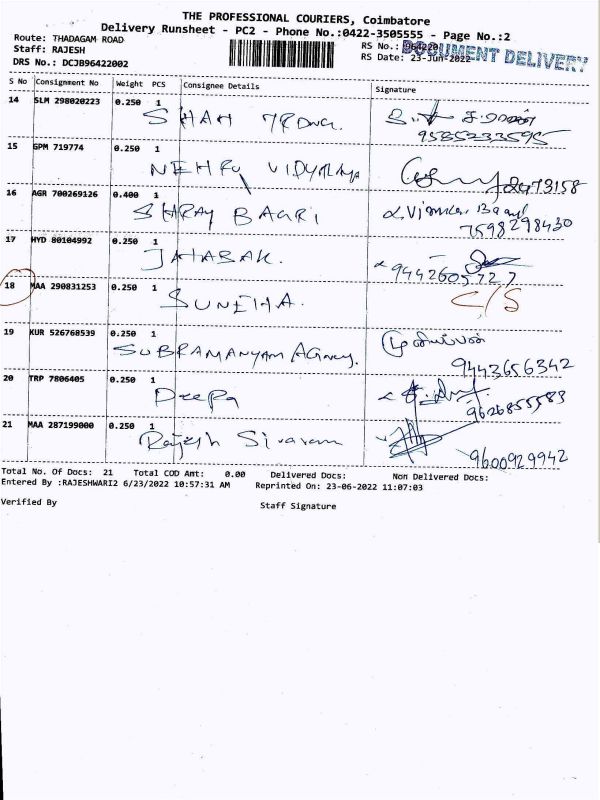 THE PROFESSIONAL COURIERS, Coimbatore
Delivery Runsheet - PC2 - Phone No.:0422-3505555 - Page No.:2
Route: THADAGAM ROAD RS No.: 964220
Staff: RAJESH RS Date: 23-Jun-2022
DOCUMENT DELIVERY
DRS No.: DCJB96422002
S No Consignment No Weight PCS Consignee Details Signature
14 SLM 298020223 0.250 1 SHAH 9585233595
15 GPM 719774 0.250 1 NEHRU VIDYALAYA 2473158
16 AGR 700269126 0.400 1 SHRAY BAGRI 7598298430
17 HYD 80104992 0.250 1 JAHABAK. 9442605727
18 MAA 290831253 0.250 1 SUNEHA. C/S
19 KUR 526768539 0.250 1 SUBRAMANYAM Agency. முனியப்பன் 9443656342
20 TRP 7806405 0.250 1 Deepa 9626855583
21 MAA 287199000 0.250 1 Rajesh Sivaram 9600929942
Total No. Of Docs: 21 Total COD Amt: 0.00 Delivered Docs: Non Delivered Docs:
Entered By :RAJESHWARI2 6/23/2022 10:57:31 AM Reprinted On: 23-06-2022 11:07:03
Verified By Staff Signature